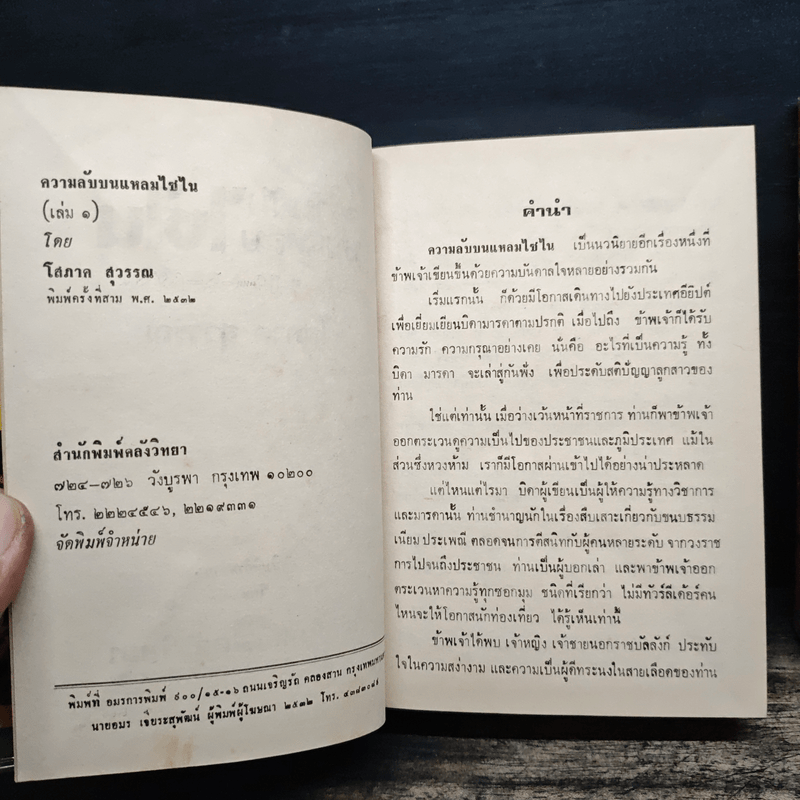 ความลับบนแหลมไซไน
(เล่ม ๑)
โดย
โสภาค สุวรรณ
พิมพ์ครั้งที่สาม พ.ศ. ๒๕๓๒
สำนักพิมพ์คลังวิทยา
๗๒๔–๗๒๖ วังบูรพา กรุงเทพ ๑๐๒๐๐
โทร. ๒๒๒๔๕๔๖, ๒๒๑๙๓๓๑
จัดพิมพ์จำหน่าย
พิมพ์ที่ อมรการพิมพ์ ๙๐๐/๑๕-๑๖ ถนนเจริญรัถ คลองสาน
นายอมร เจียระสุพัฒน์ ผู้พิมพ์ผู้โฆษณา ๒๕๓๒ โทร.
คำนำ
ความลับบนแหลมไซไน เป็นนวนิยายอีกเรื่องหนึ่งที่
ข้าพเจ้าเขียนขึ้นด้วยความบันดาลใจหลายอย่างรวมกัน
เริ่มแรกนั้น ก็ด้วยมีโอกาสเดินทางไปยังประเทศอียิปต์
เพื่อเยี่ยมเยียนบิดามารดาตามปรกติ เมื่อไปถึง ข้าพเจ้าก็ได้รับ
ความรัก ความกรุณาอย่างเคย นั่นคือ อะไรที่เป็นความรู้ ทั้ง
บิดา มารดา จะเล่าสู่กันฟัง เพื่อประดับสติปัญญาลูกสาวของ
ท่าน
ใช่แต่เท่านั้น เมื่อว่างเว้นหน้าที่ราชการ ท่านก็พาข้าพเจ้า
ออกตระเวนดูความเป็นไปของประชาชนและภูมิประเทศ แม้ใน
ส่วนซึ่งหวงห้าม เราก็มีโอกาสผ่านเข้าไปได้อย่างน่าประหลาด
แต่ไหนแต่ไรมา บิดาผู้เขียนเป็นผู้ให้ความรู้ทางวิชาการ
และมารดานั้น ท่านชำนาญนักในเรื่องสืบเสาะเกี่ยวกับขนบธรรม
เนียม ประเพณี ตลอดจนการตีสนิทกับผู้คนหลายระดับ จากวงราช
การไปจนถึงประชาชน ท่านเป็นผู้บอกเล่า และพาข้าพเจ้าออก
ตระเวนหาความรู้ทุกซอกมุม ชนิดที่เรียกว่า ไม่มีทัวร์ลีเด้อร์คน
ไหนจะให้โอกาสนักท่องเที่ยว ได้รู้เห็นเท่านี้
ข้าพเจ้าได้พบ เจ้าหญิง เจ้าชายนอกราชบัลลังก์ ประทับ
ใจในความสง่างาม และความเป็นผู้ดีทระนงในสายเลือดของท่าน